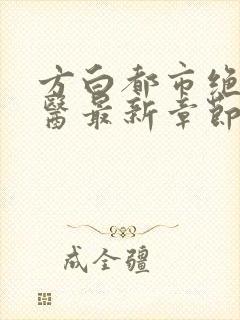 方白都市绝
醫最新章節
成全疆